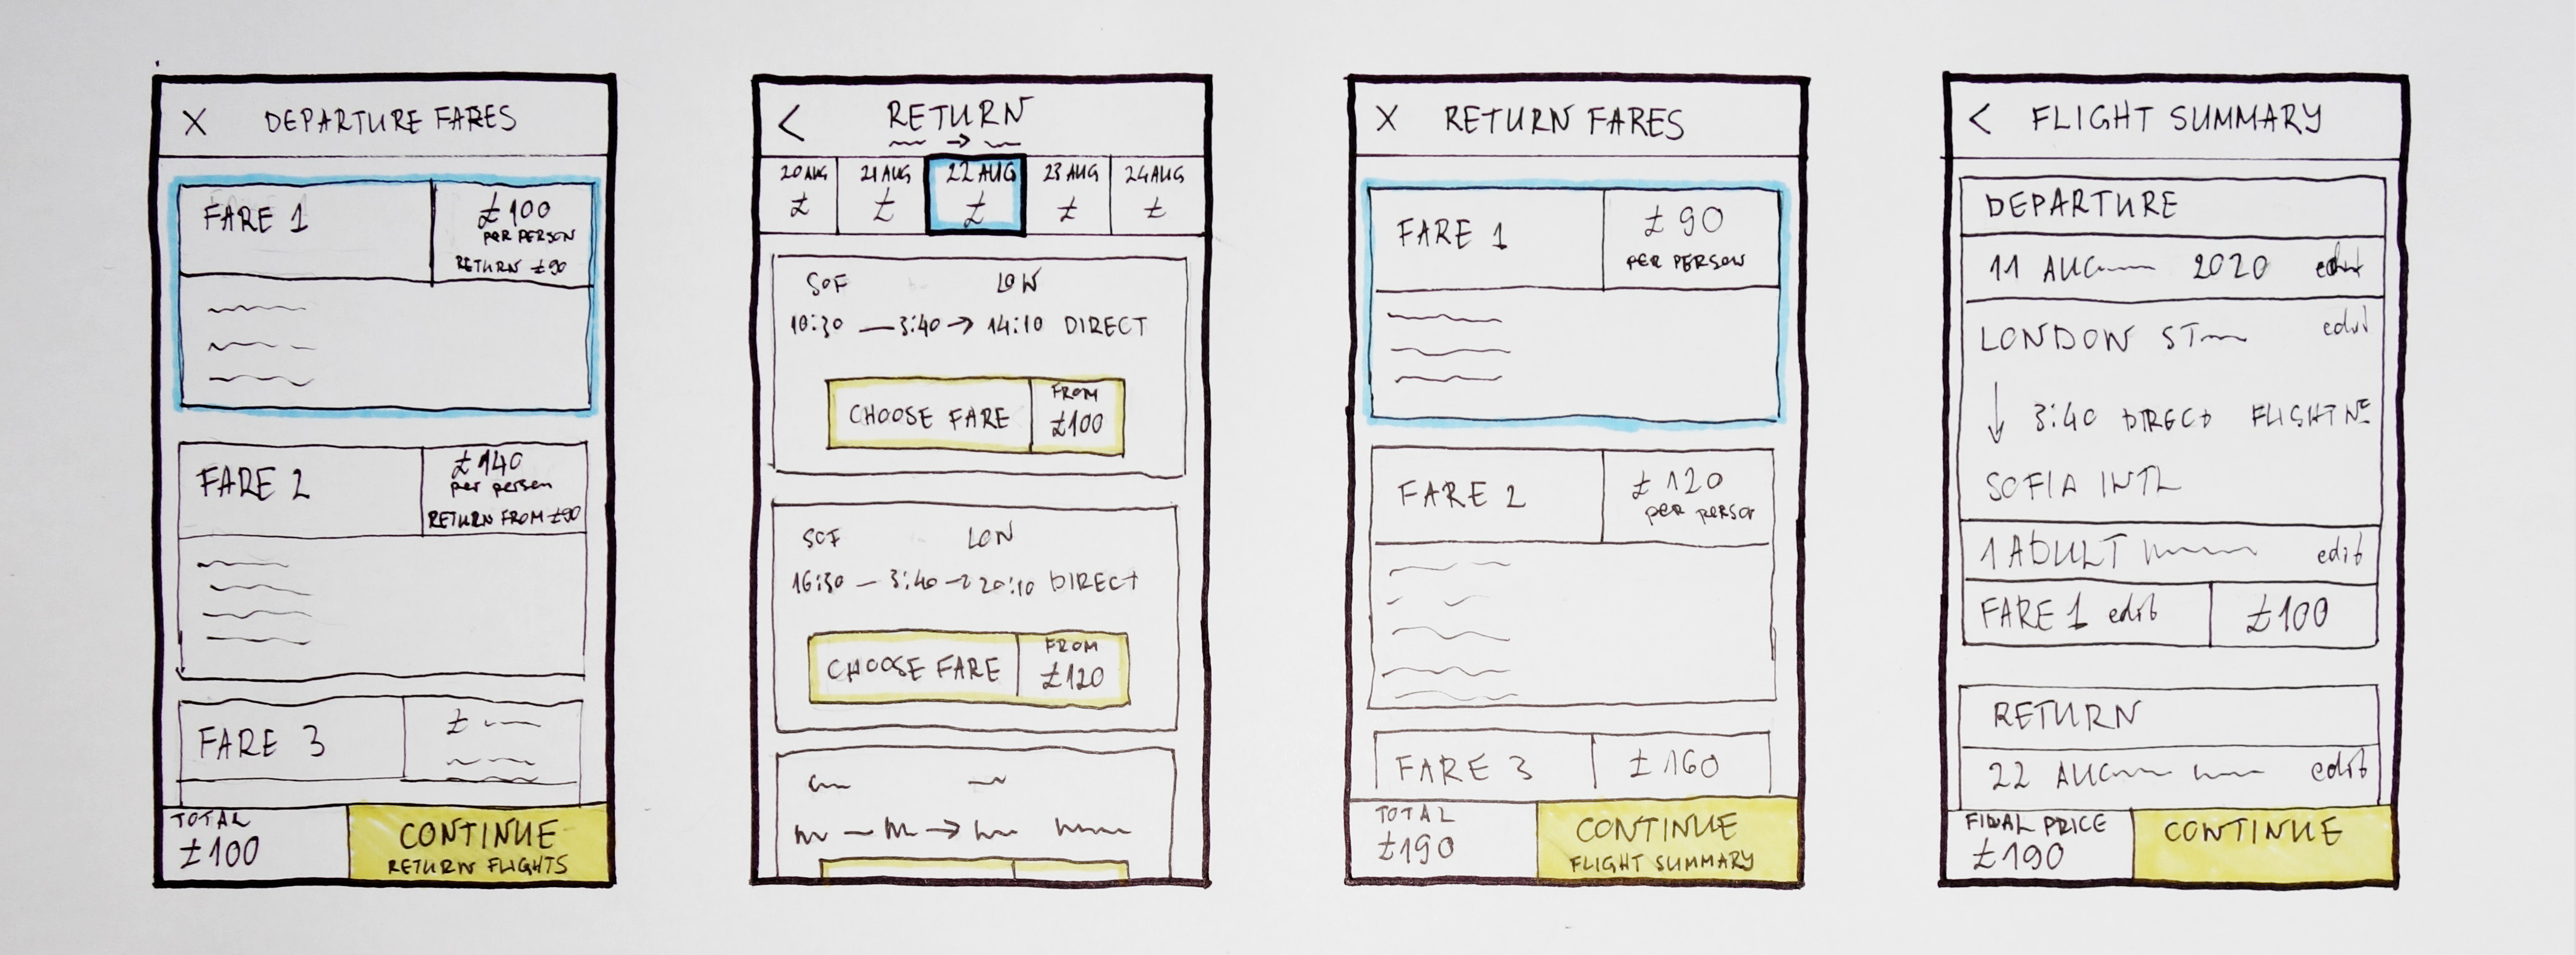 X DEPARTURE FARES
FARE 1
£100
PER PERSON
RETURN £90
FARE 2
£140
per person
RETURN FROM £90
FARE 3
£
TOTAL
£100
CONTINUE
RETURN FLIGHTS
< RETURN
→
20 AUG
£
21 AUG
£
22 AUG
£
23 AUG
£
24 AUG
£
SOF LON
10:30 — 3:40 → 14:10 DIRECT
CHOOSE FARE
FROM
£100
SOF LON
16:30 — 3:40 → 20:10 DIRECT
CHOOSE FARE
FROM
£120
X RETURN FARES
FARE 1
£ 90
PER PERSON
FARE 2
£ 120
per person
FARE 3
£ 160
TOTAL
£190
CONTINUE
FLIGHT SUMMARY
< FLIGHT SUMMARY
DEPARTURE
11 AUG 2020 edit
LONDON ST edit
↓ 3:40 DIRECT FLIGHT NE
SOFIA INTL
1 ADULT edit
FARE 1 edit
£100
RETURN
22 AUG edit
FINAL PRICE
£190
CONTINUE